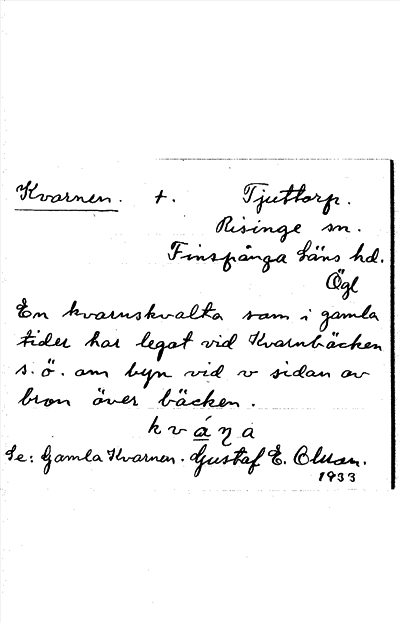 Kvarnen. +. Tjuttorp.
Risinge sn.
Finspånga läns hd.
Ögl
En kvarnskvalta som i gamla
tider har legat vid Kvarnbäcken
s. ö. om byn vid v sidan av
bron över bäcken.
k v á η a
Se: Gamla Kvarnen. Gustaf E. Olsson.
1933